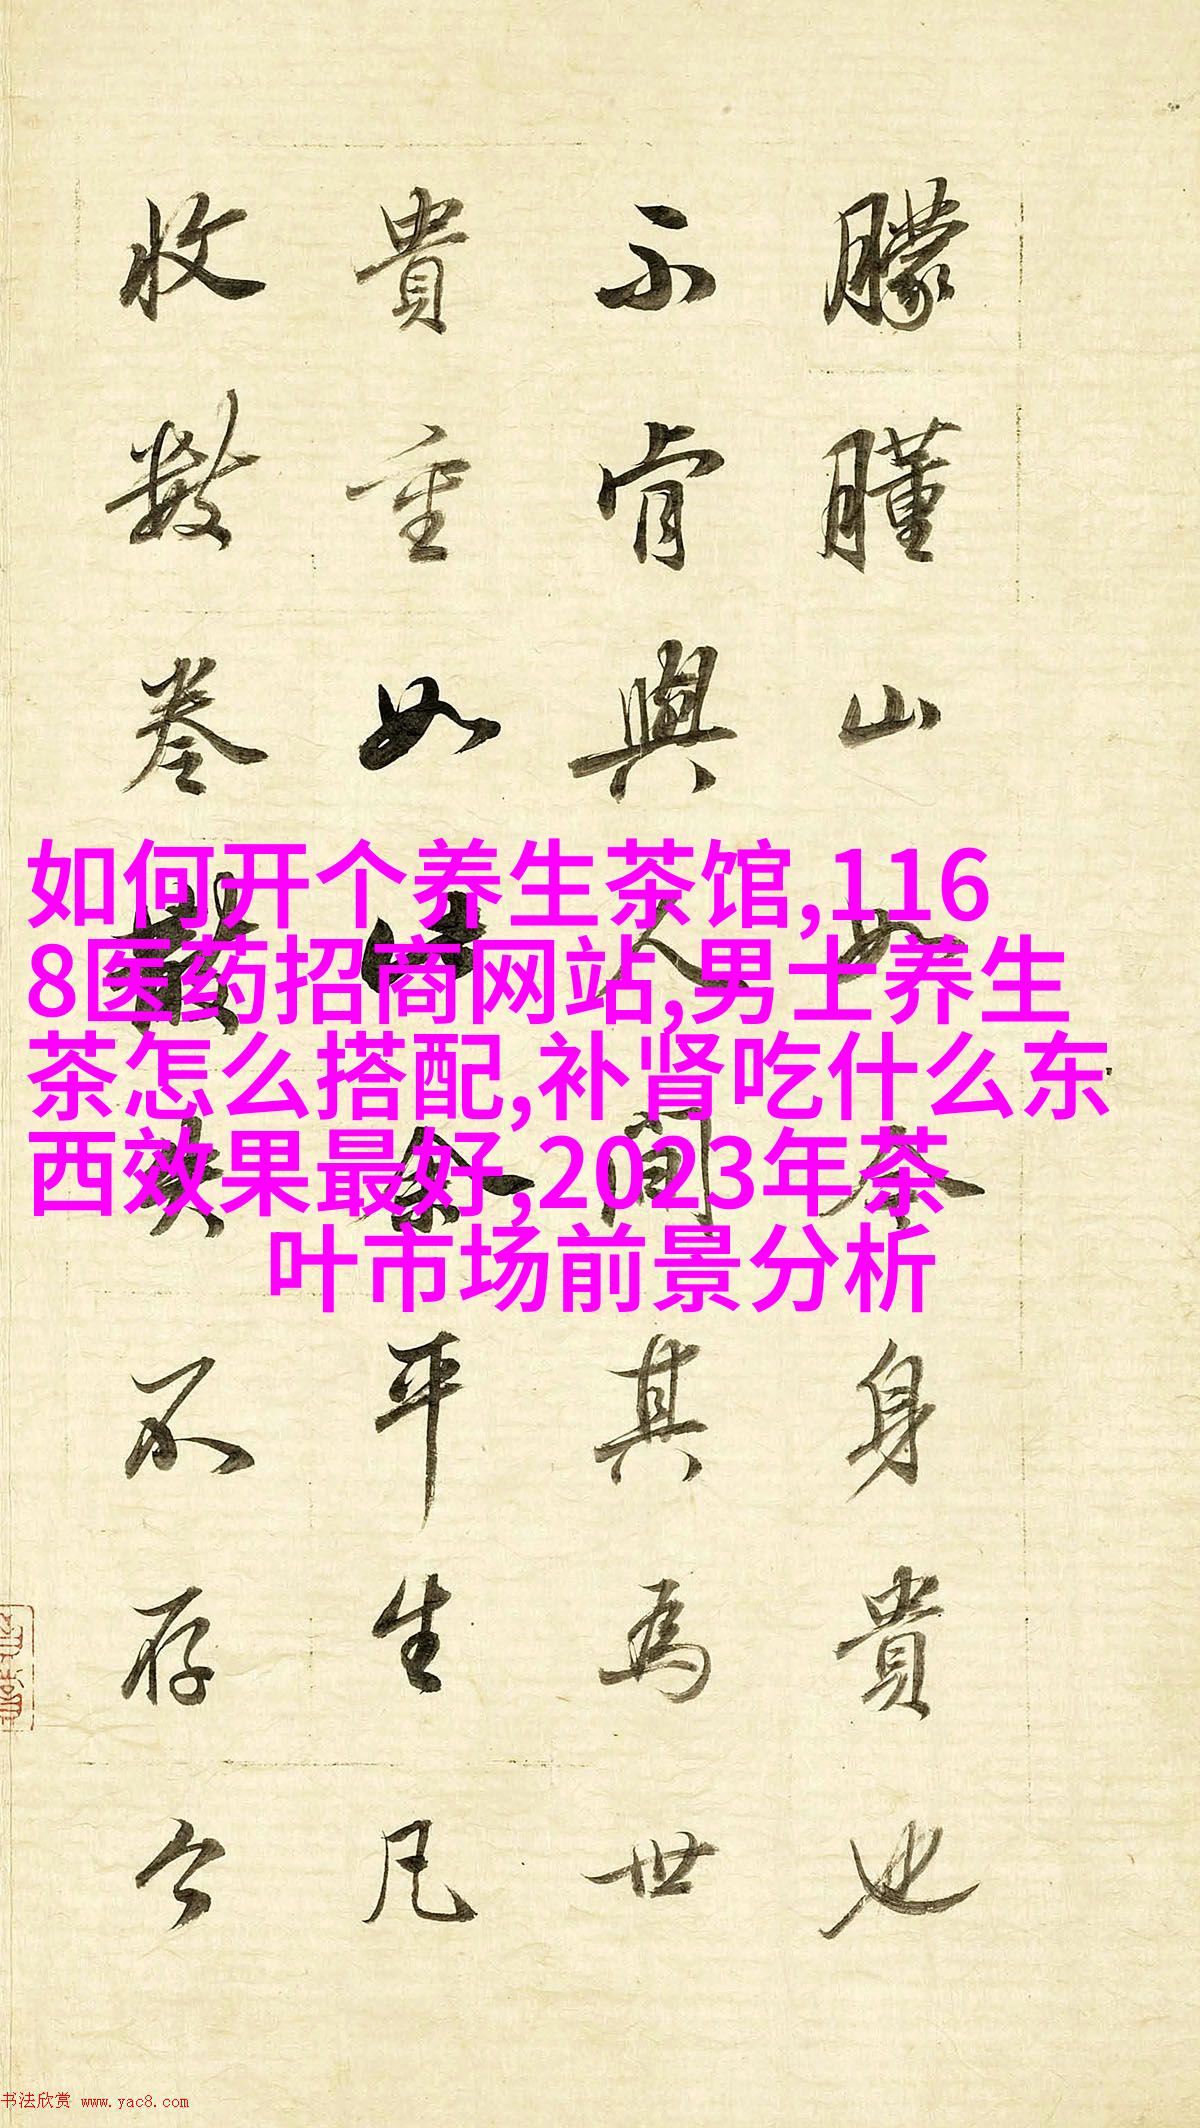 朦朣山如身貴也
不肯與人間其為世
貴重如此余平生凡
收數卷散失不存今
如何开个养生茶馆,116
8医药招商网站,男士养生
茶怎么搭配,补肾吃什么东
西效果最好,2023年茶
叶市场前景分析
书法欣赏 www.yac8.com